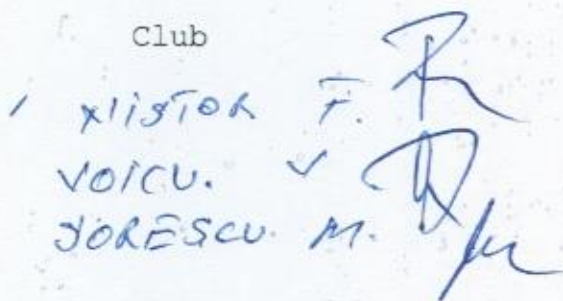 Club
NISTOR F.
VOICU. V
JORESCU. M.